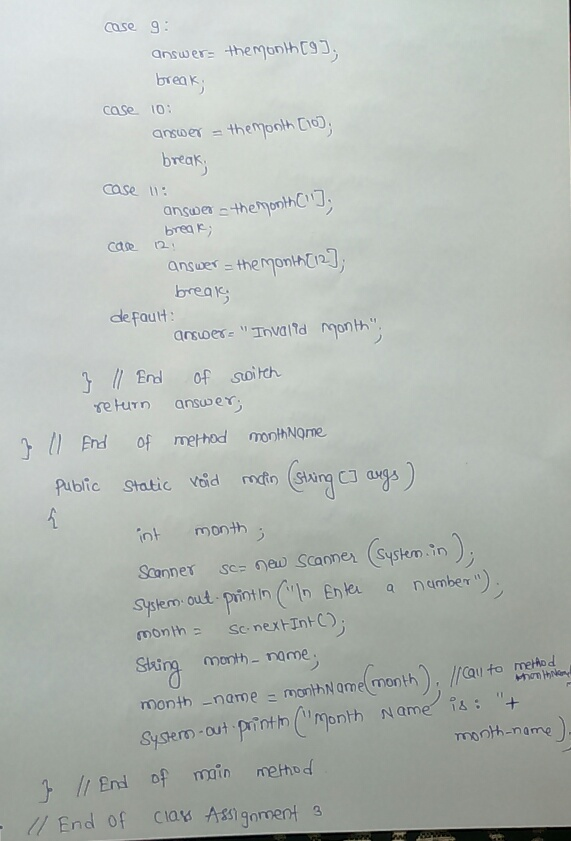 case 9:
answer= themonth[9];
break;
case 10:
answer = themonth[10];
break;
case 11:
answer = themonth[11];
break;
case 12:
answer = themonth[12];
break;
default:
answer= "Invalid month";
} // End of switch
return answer;
} // End of method monthName
public static void main (String [] args)
{
int month ;
Scanner sc= new Scanner (System.in);
System.out.println ("\n Enter a number");
month = sc.nextInt();
String month_name;
month_name = monthName(month); //Call to method monthName
System.out.println ("Month Name is: "+
month_name);
} // End of main method
// End of class Assignment 3